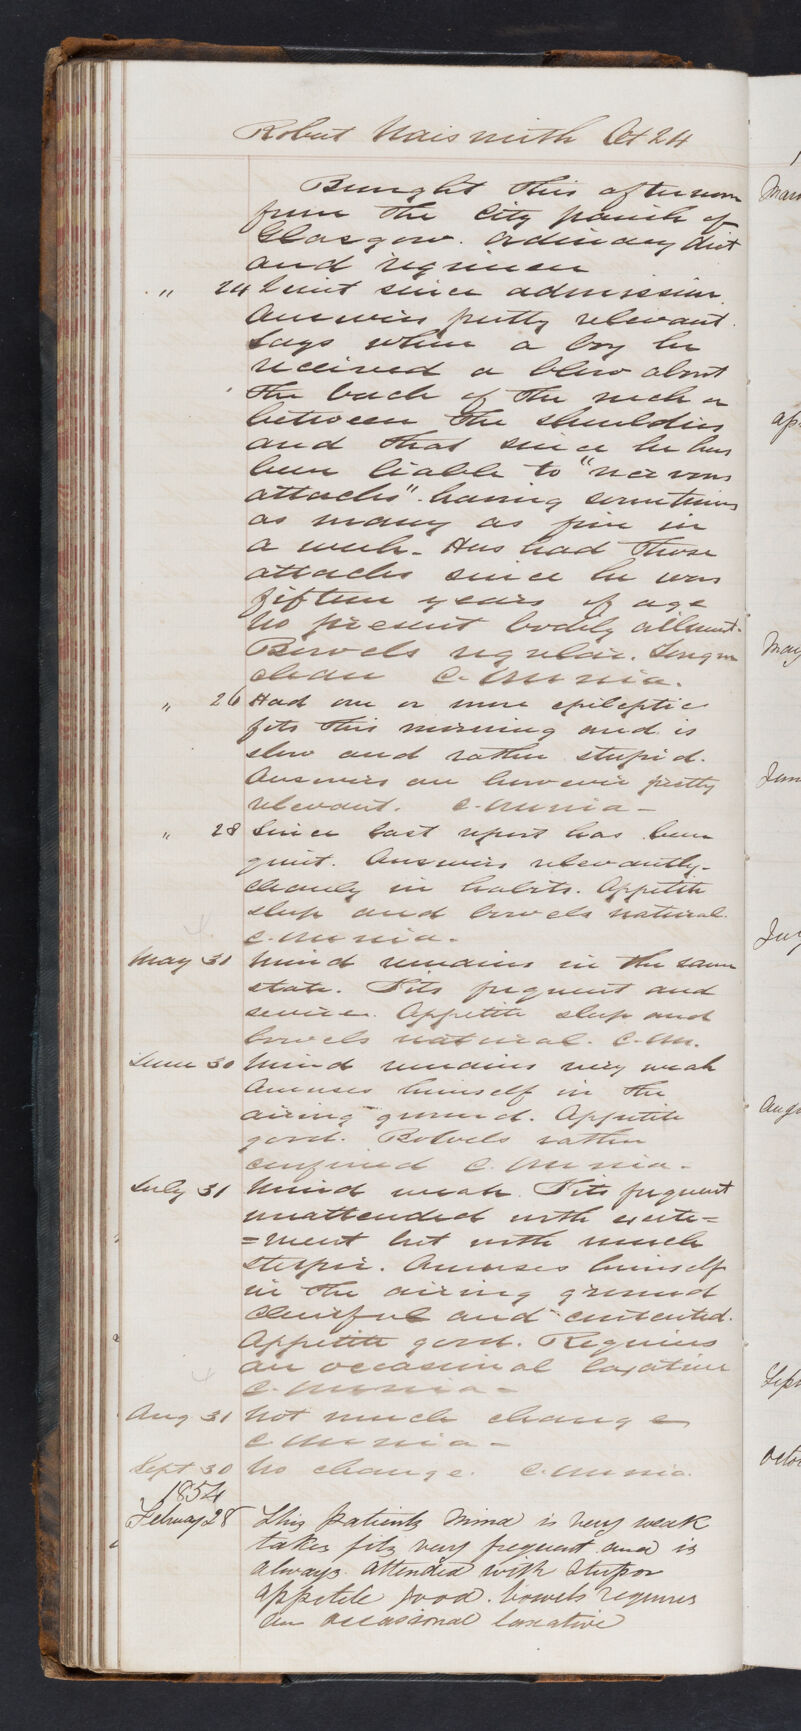 Robert Naismith Æt 24
Brought this afternoon
from the City parish of
Glasgow. Ordinary diet
and regimen
" 24 Quiet since admission.
Answers pretty relevant.
Says when a boy he
received a blow about
the back of the neck or
between the shoulders
and that since he has
been liable to "nervous
attacks" having sometimes
as many as five in
a week. Has had these
attacks since he was
fifteen years of age
No present bodily ailment.
Bowels regular. Tongue
clean
" 26 Had one or more epileptic
fits this morning and is
slow and rather stupid.
Answers are however pretty
relevant.
" 28 Since last report has been
quiet. Answers relevantly.
cleanly in habits. Appetite
sleep and bowels natural.
May 31 Mind remains in the same
state. Fits frequent and
severe. Appetite sleep and
bowels natural.
June 30 Mind remains very weak
Amuses himself in the
airing ground. Appetite
good. Bowels rather
confined
July 31 Mind weak. Fits frequent
unattended with excite=
=ment but with much
stupor. Amuses himself
in the airing ground
cheerful and contented.
Appetite good. Requires
an occasional laxative
Aug 31 Not much change
Sept 30 No change.
1854
Febuay 28 This patients mind is very weak
takes fits very frequent and is
always attended with stupor
appetite good. bowels requires
an occasional laxative